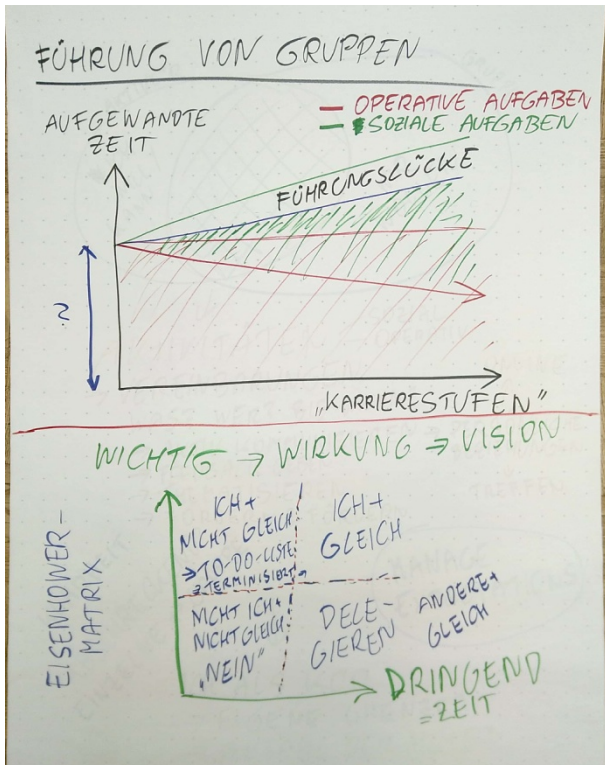 FÜHRUNG VON GRUPPEN
— OPERATIVE AUFGABEN
— SOZIALE AUFGABEN
AUFGEWANDTE
ZEIT
FÜHRUNGSLÜCKE
?
„KARRIERESTUFEN"
WICHTIG → WIRKUNG → VISION
EISENHOWER-
MATRIX
ICH +
NICHT GLEICH
→ TO-DO-LISTE
ICH +
GLEICH
NICHT ICH +
NICHT GLEICH
„NEIN"
DELE-
GIEREN
ANDERE +
GLEICH
DRINGEND
= ZEIT